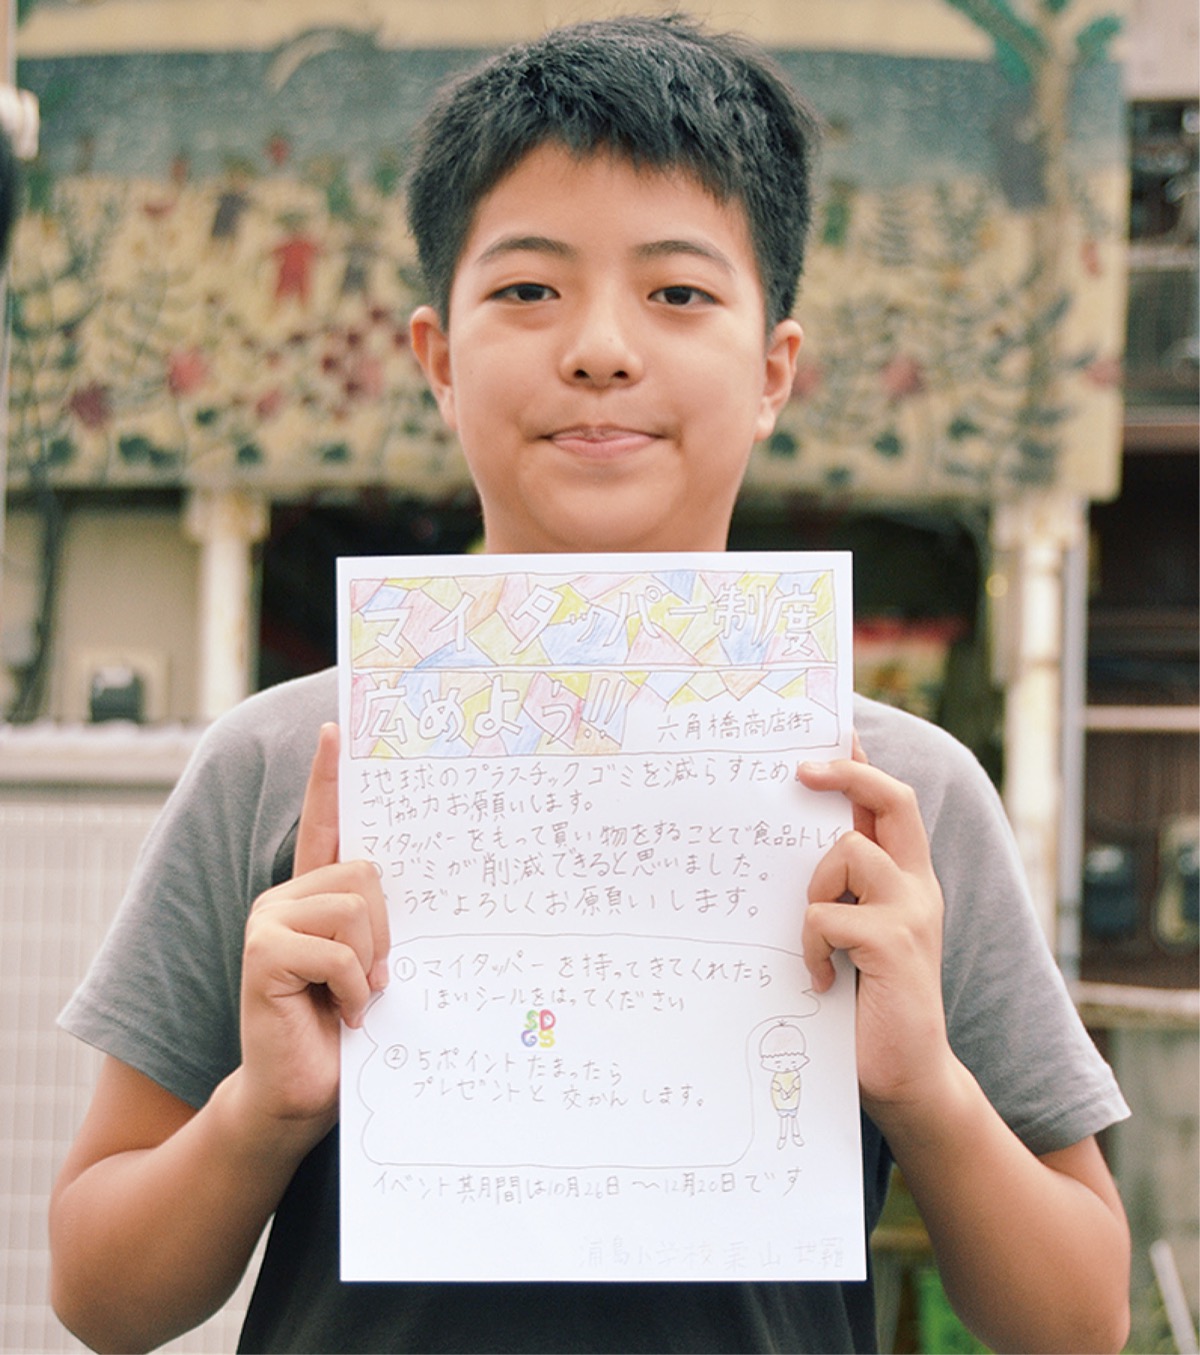 マイタッパー制度
広めよう!!
六角橋商店街
地球のプラスチックゴミを減らすため
ご協力お願いします。
マイタッパーをもって買い物をすることで食品トレイ
のゴミが削減できると思いました。
うぞよろしくお願いします。
① マイタッパーを持ってきてくれたら
1まいシールをはってください
SD
GS
② 5ポイントたまったら
プレゼントと交かんします。
イベント期間は10月26日〜12月20日です
浦島小学校 栗山